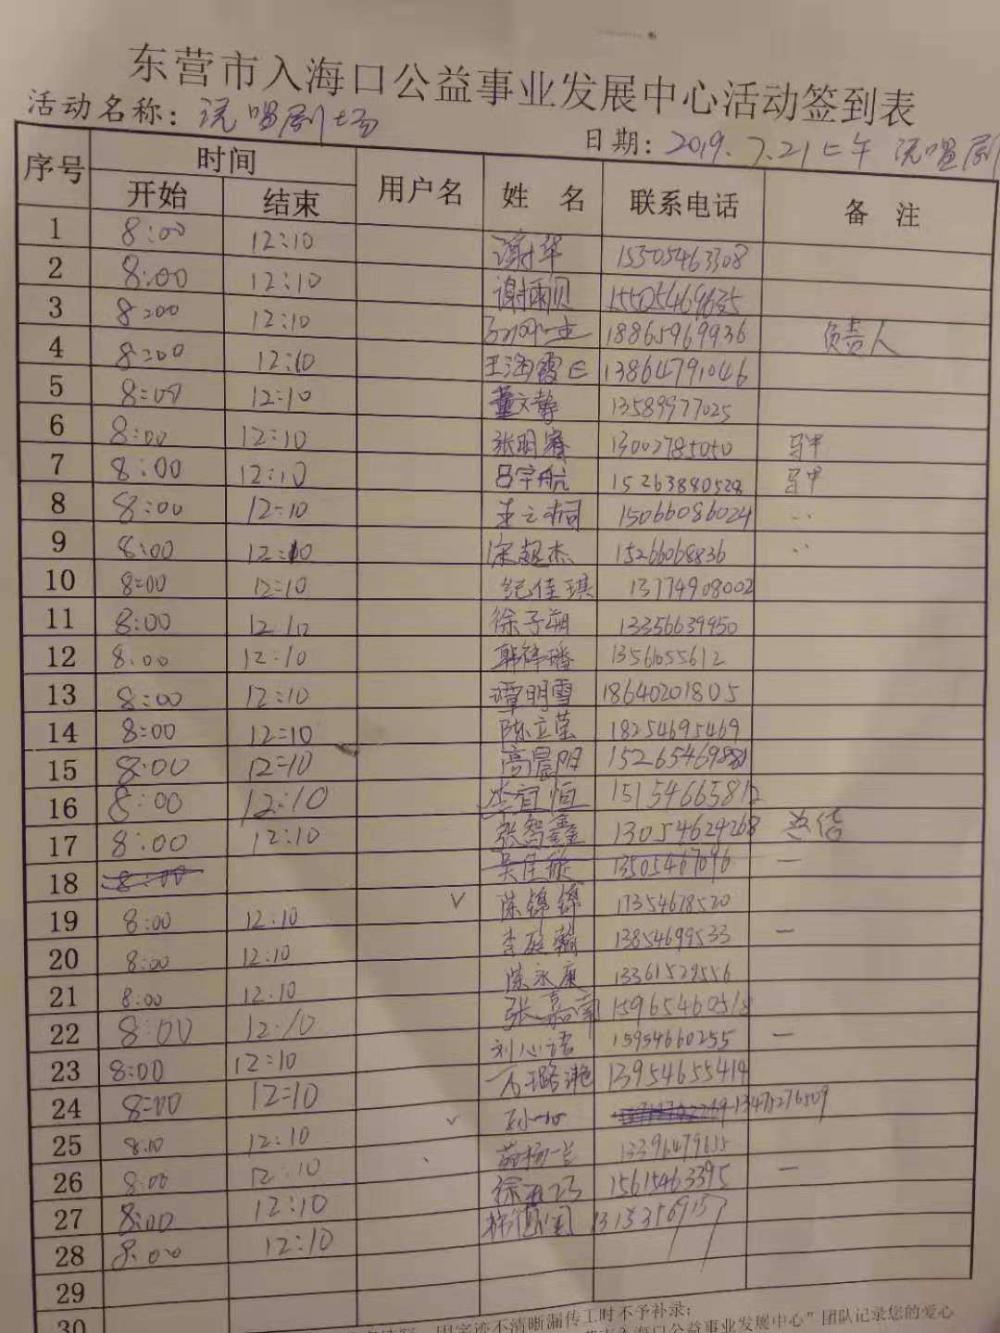 东营市入海口公益事业发展中心活动签到表
活动名称：说唱剧场
日期：2019.7.21上午 说唱剧
序号 时间 用户名 姓 名 联系电话 备 注
开始 结束
1 8:00 12:10 谢华 15305463308
2 8:00 12:10 谢雨贝
3 8:00 12:10 18865969936 负责人
4 8:00 12:10 王海霞 13864791046
5 8:00 12:10 董文静 13589977025
6 8:00 12:10 张明睿 13002785050 马甲
7 8:00 12:10 吕宇航 15263880528 马甲
8 8:00 12:10 15066086024 ..
9 8:00 12:10 宋超杰 15266068836 ..
10 8:00 12:10 纪佳琪 13774908002
11 8:00 12:10 徐子朔 13356639950
12 8:00 12:10 1356055612
13 8:00 12:10 谭明雪 18640201805
14 8:00 12:10 陈立莹 18254695469
15 8:00 12:10 高晨阳
16 8:00 12:10 李宜恒 15154665812
17 8:00 12:10 张智鑫 13054624268
18 8:00 13505467096 —
19 8:00 12:10 ✓ 陈锦锦 17354678520
20 8:00 12:10 李庭翰 13854699533 —
21 8:00 12:10 陈永康 13361529556
22 8:00 12:10 15965460518
23 8:00 12:10 刘心语 15954660255 —
24 8:00 12:10 13954655414
25 8:00 12:10 ✓ 13475276509
26 8:00 12:10
27 8:00 12:10 15615463395 —
28 8:00 12:10
29
30
因字迹不清晰漏传工时不予补录；
市入海口公益事业发展中心”团队记录您的爱心